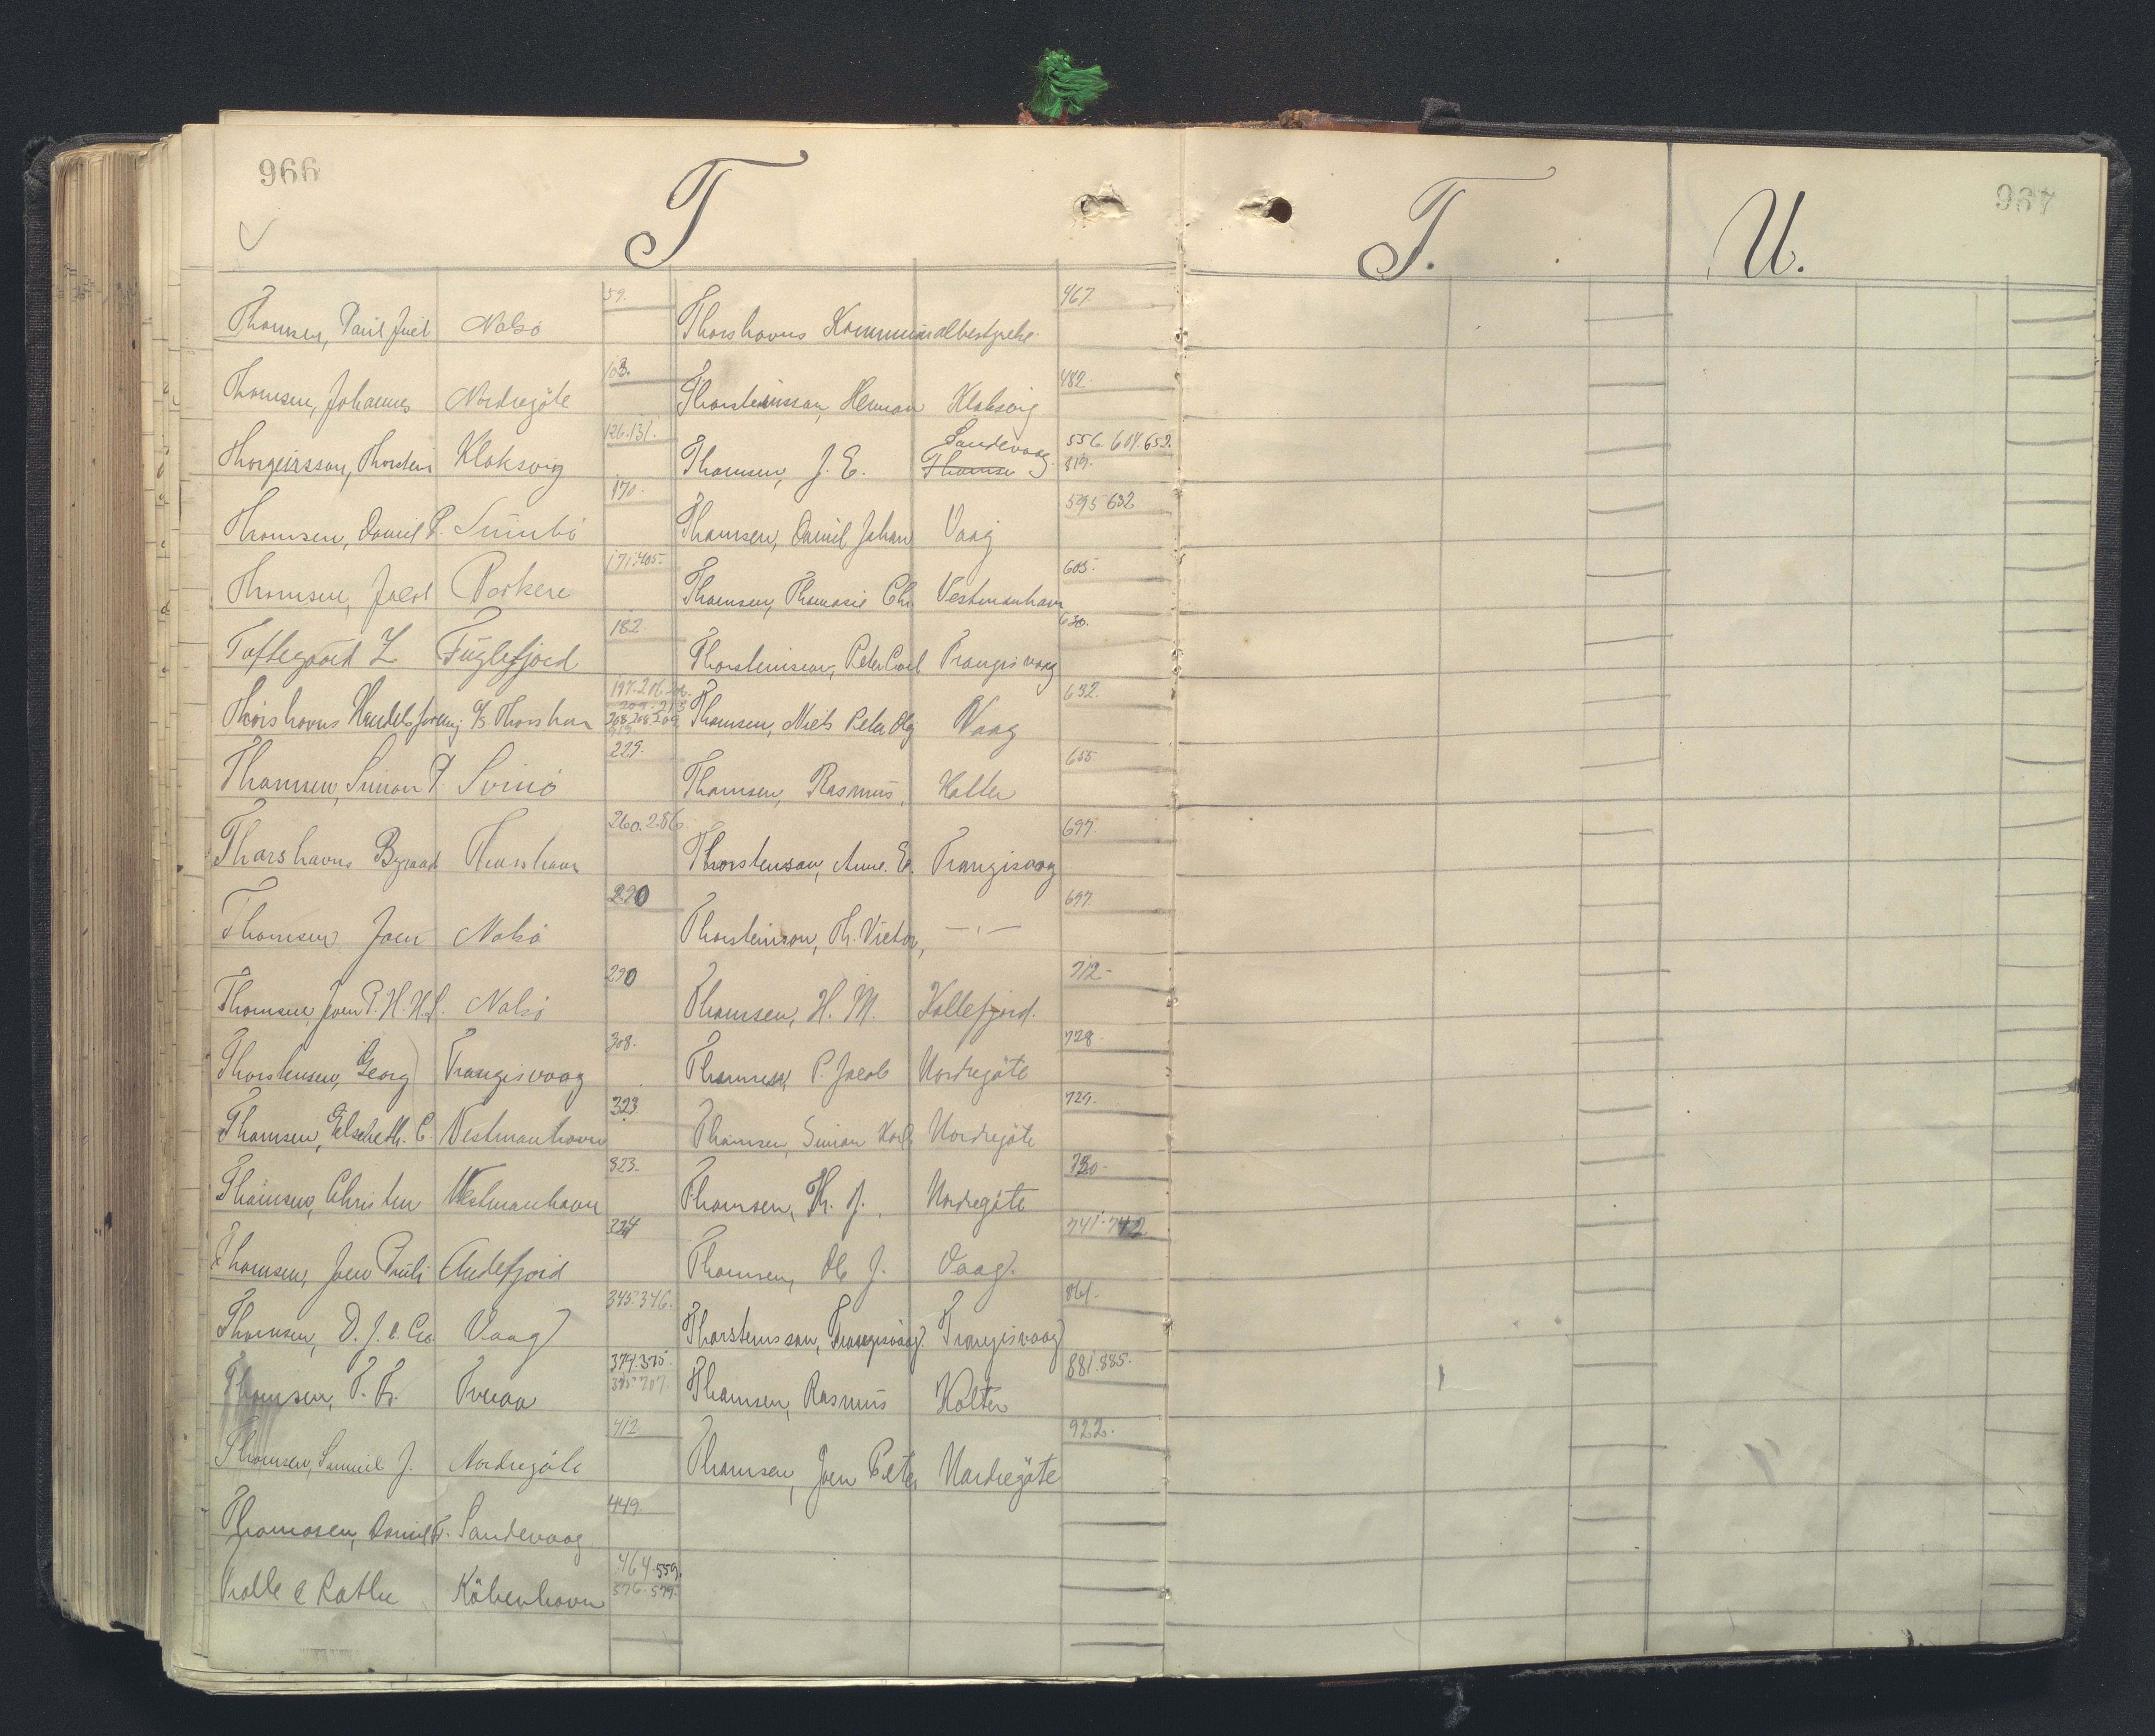 966
T
Thomsen, Paul Juel Nolsö 59.
Thomsen, Johannes Nordregöte 103.
Thorgeirsson, Thorstein Klaksvig 126.131.
Thomsen, Daniel P. Sumbö 170.
Thomsen, Jacob Porkere 171.405.
Toftegaard Z Fuglefjord 182.
Thorshavns Handelsforening A/S Thorshavn 197.206.
208.208.209.
Thomsen, Simon P. Svinö 229.
Thorshavns Byraad Thorshavn 260.286.
Thomsen Joen Nolsö 290
Thomsen, Joen P. H. H. S. Nolsö 290
Thorstensen, Georg Trangisvaag 308.
Thomsen, Elsebeth. C. Vestmanhavn 323
Thomsen, Christen Vestmanhavn 323.
Thomsen, Joen Pauli Andefjord 324
Thomsen, D. J. & Co. Vaag 345.346.
Thomsen, T. Fr. Tveraa 374.375.
395.707.
Thomsen, Samuel J. Nordregöte 412
Thomasen, Daniel F. Sandevaag 449.
Trolle & Rothe Köbenhavn 464.559.
576.579.
Thorshavns Kommunalbestyrelse. 467.
Thorsteinsson, Herman Klaksvig 482.
Thomsen, J. E. Sandevaag. 556.604.652.
Thomse 819.
Thomsen, Daniel Johan Vaag 595 632
Thomsen, Thomasie Chr. Vestmanhavn 605.
Thorsteinsson, Peter Carl Trangisvaag 630.
Thomsen, Niels Peter Olg Vaag 632.
Thomsen, Rasmus, Kolter 655.
Thorstenson, Anne. E. Trangisvaag 697.
Thorsteinson, Th. Victor, —"— 697.
Thomsen, H. M. Kollefjord. 712-
Thomsen P. Jacob Nordregöte 728-
Thomsen, Simon Karl Nordregöte 729.
Thomsen, Th. J. Nordregöte 730-
Thomsen, Ole J. Vaag. 741.742
Thorsteinsson, Trangisvaag. Trangisvaag 861.
Thomsen, Rasmus Kolter 881.885.
Thomsen, Joen Peter Nordregöte 922.
T. U.
967